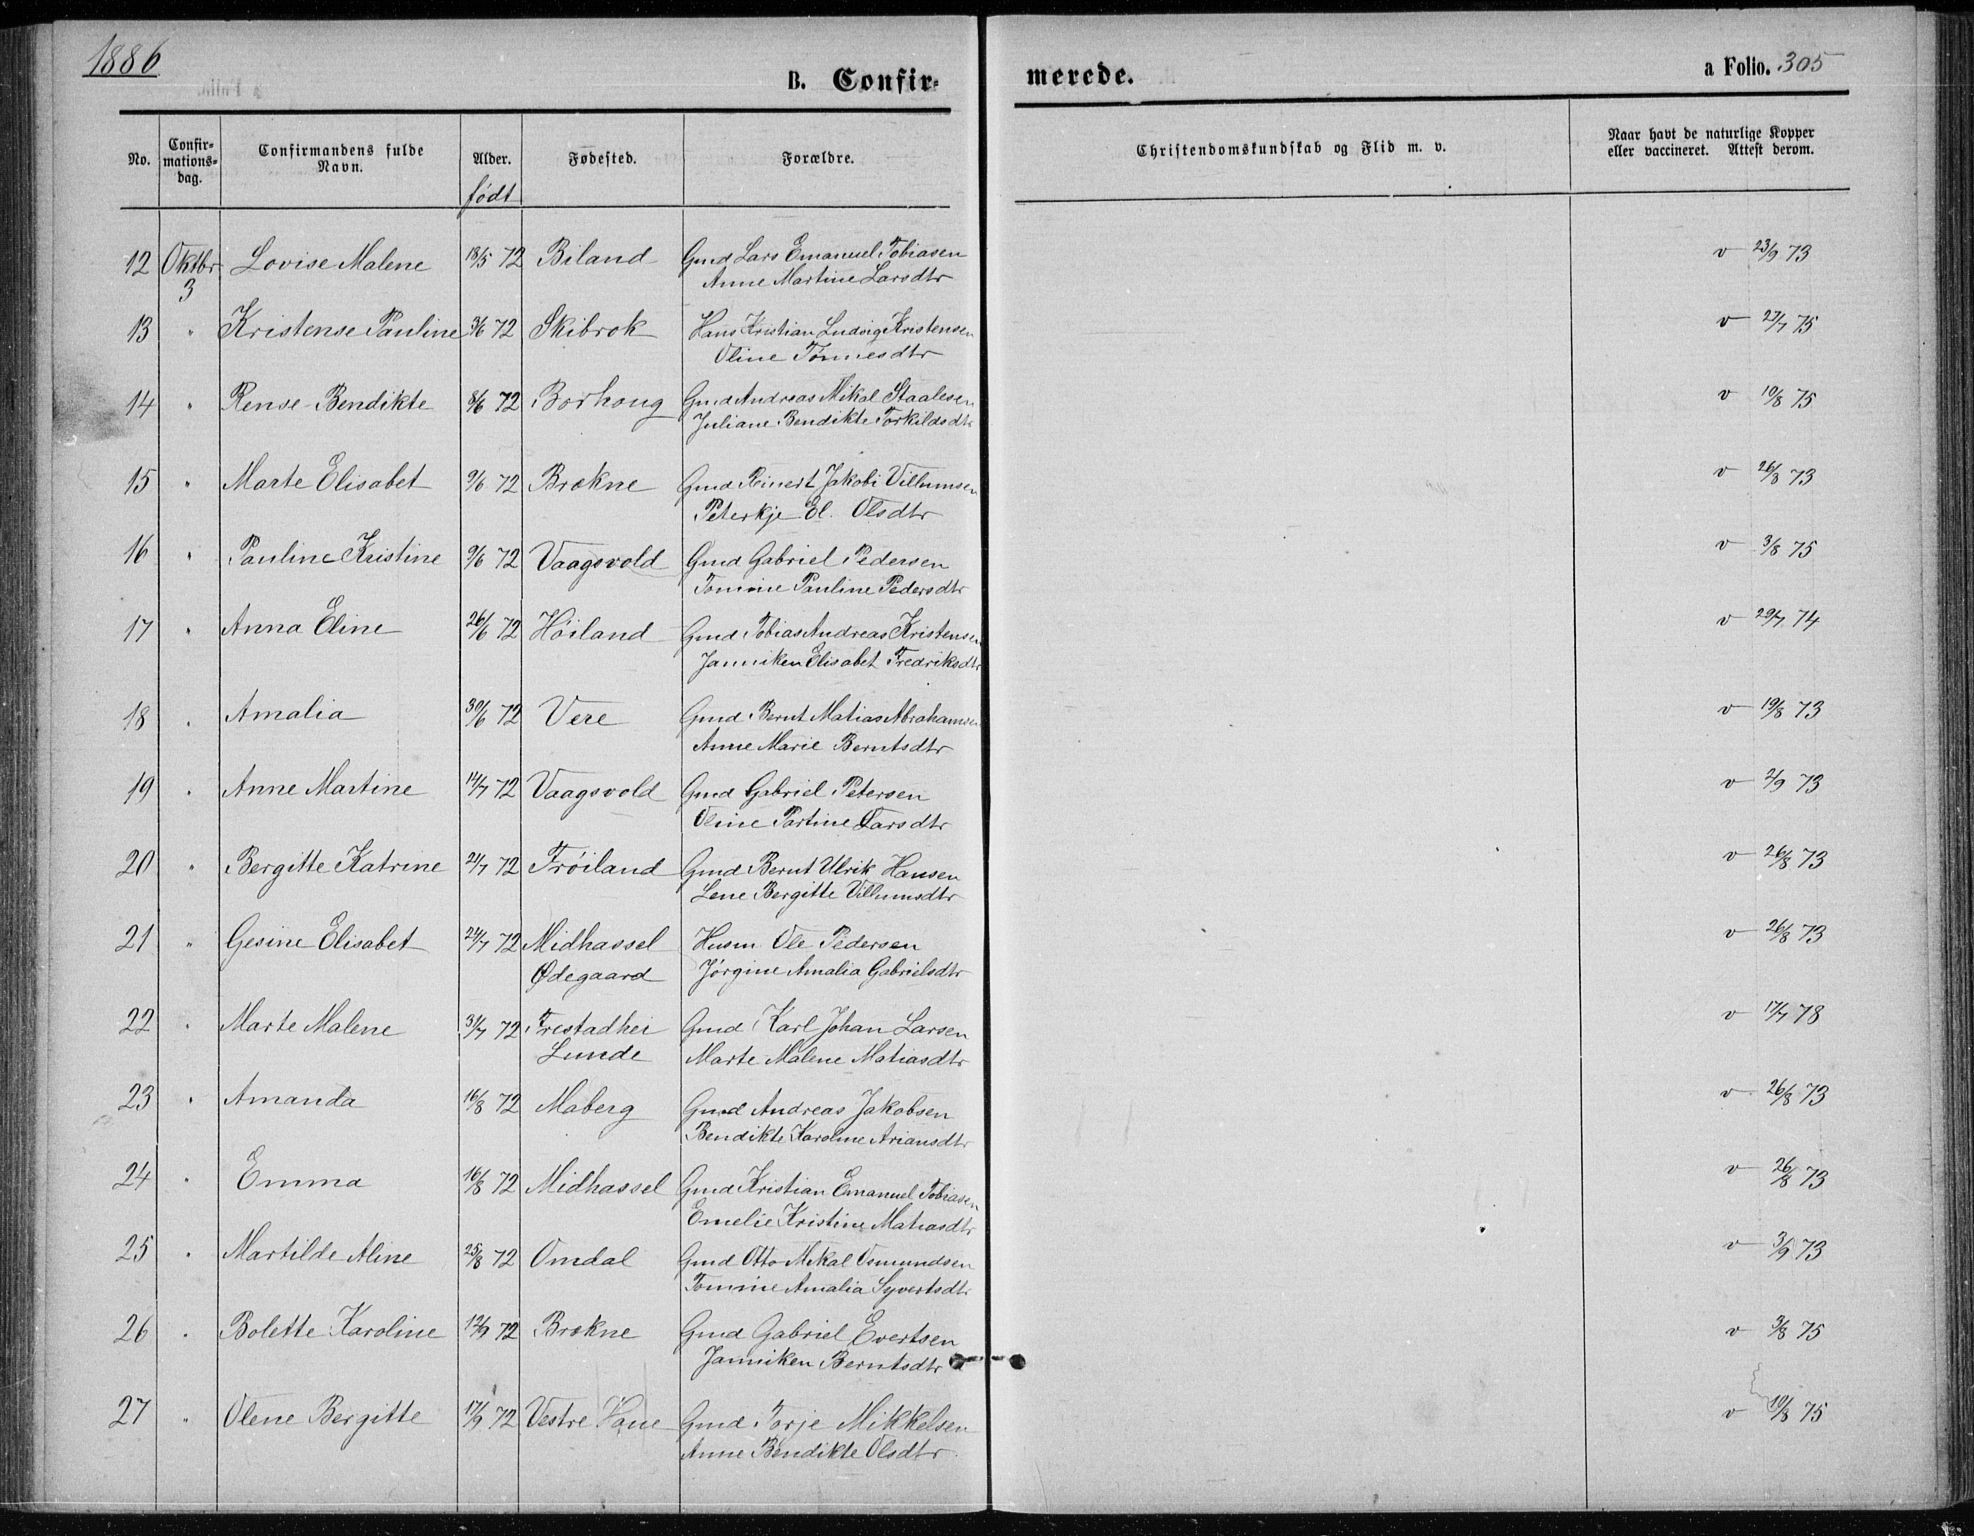 1886
B. Confir-
merede.
a Folio. 305
No.
Confir-
mations-
dag.
Confirmandens fulde
Navn.
Alder.
født
Fødested.
Forældre.
Christendomskundskab og Flid m. v.
Naar havt de naturlige Kopper
eller vaccineret. Attest derom.
12 Oktbr Lovise Malene 18/5 72 Biland Gmd Lars Emanuel Tobiasen v 23/9 73
3 Anne Martine Larsdtr
13 " Kristense Pauline 3/6 72 Skibrok Hans Kristian Ludvig Kristensen v 27/7 75
Oline Tønnesdtr
14 " Rense Bendikte 8/6 72 Borhoug Gmd Andreas Mikal Staalesen v 10/8 75
Juliane Bendikte Torkildsdtr
15 " Marte Elisabet 9/6 72 Brekne Gmd Reinert Jakobi Villumsen v 26/8 73
Peterkje El. Olsdtr
16 " Pauline Kristine 9/6 72 Vaagsvold Gmd Gabriel Pedersen v 3/8 75
Tomine Pauline Pedersdtr
17 " Anna Eline 26/6 72 Høiland Gmd Tobias Andreas Kristensen v 29/7 74
Janniken Elisabet Fredriksdtr
18 " Amalia 30/6 72 Vere Gmd Bernt Matias Abrahamsen v 19/8 73
Anne Marie Berntsdtr
19 " Anne Martine 14/7 72 Vaagsvold Gmd Gabriel Petersen v 2/9 73
Oline Partine Larsdtr
20 " Bergitte Katrine 21/7 72 Frøiland Gmd Bernt Ulrik Hansen v 26/8 73
Lene Bergitte Villumsdtr
21 " Gesine Elisabet 24/7 72 Midhassel Husm Ole Pedersen v 26/8 73
Ødegaard Jørgine Amalia Gabrielsdtr
22 " Marte Malene 31/7 72 Frestadhei Gmd Karl Johan Larsen v 17/7 78
Lunde Marte Malene Matiasdtr
23 " Amanda 16/8 72 Maberg Gmd Andreas Jakobsen v 26/8 73
Bendikte Karoline Ariansdtr
24 " Emma 16/8 72 Midhassel Gmd Kristian Emanuel Tobiasen v 26/8 73
Emelie Kristine Matiasdtr
25 " Martilde Aline 25/8 72 Omdal Gmd Otto Mikal Osmundsen v 3/9 73
Tomine Amalia Syvertsdtr
26 " Bolette Karoline 12/9 72 Brekne Gmd Gabriel Evertsen v 3/8 75
Janniken Berntsdtr
27 " Olene Bergitte 17/9 72 Vestre Hane Gmd Torje Mikkelsen v 10/8 75
Anne Bendikte Olsdtr